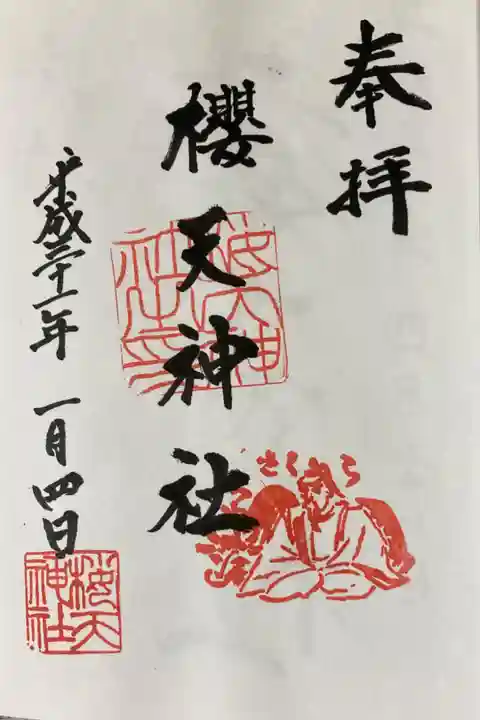 奉拝
櫻天神社
さくら
平成三十一年一月四日
桜天
神社